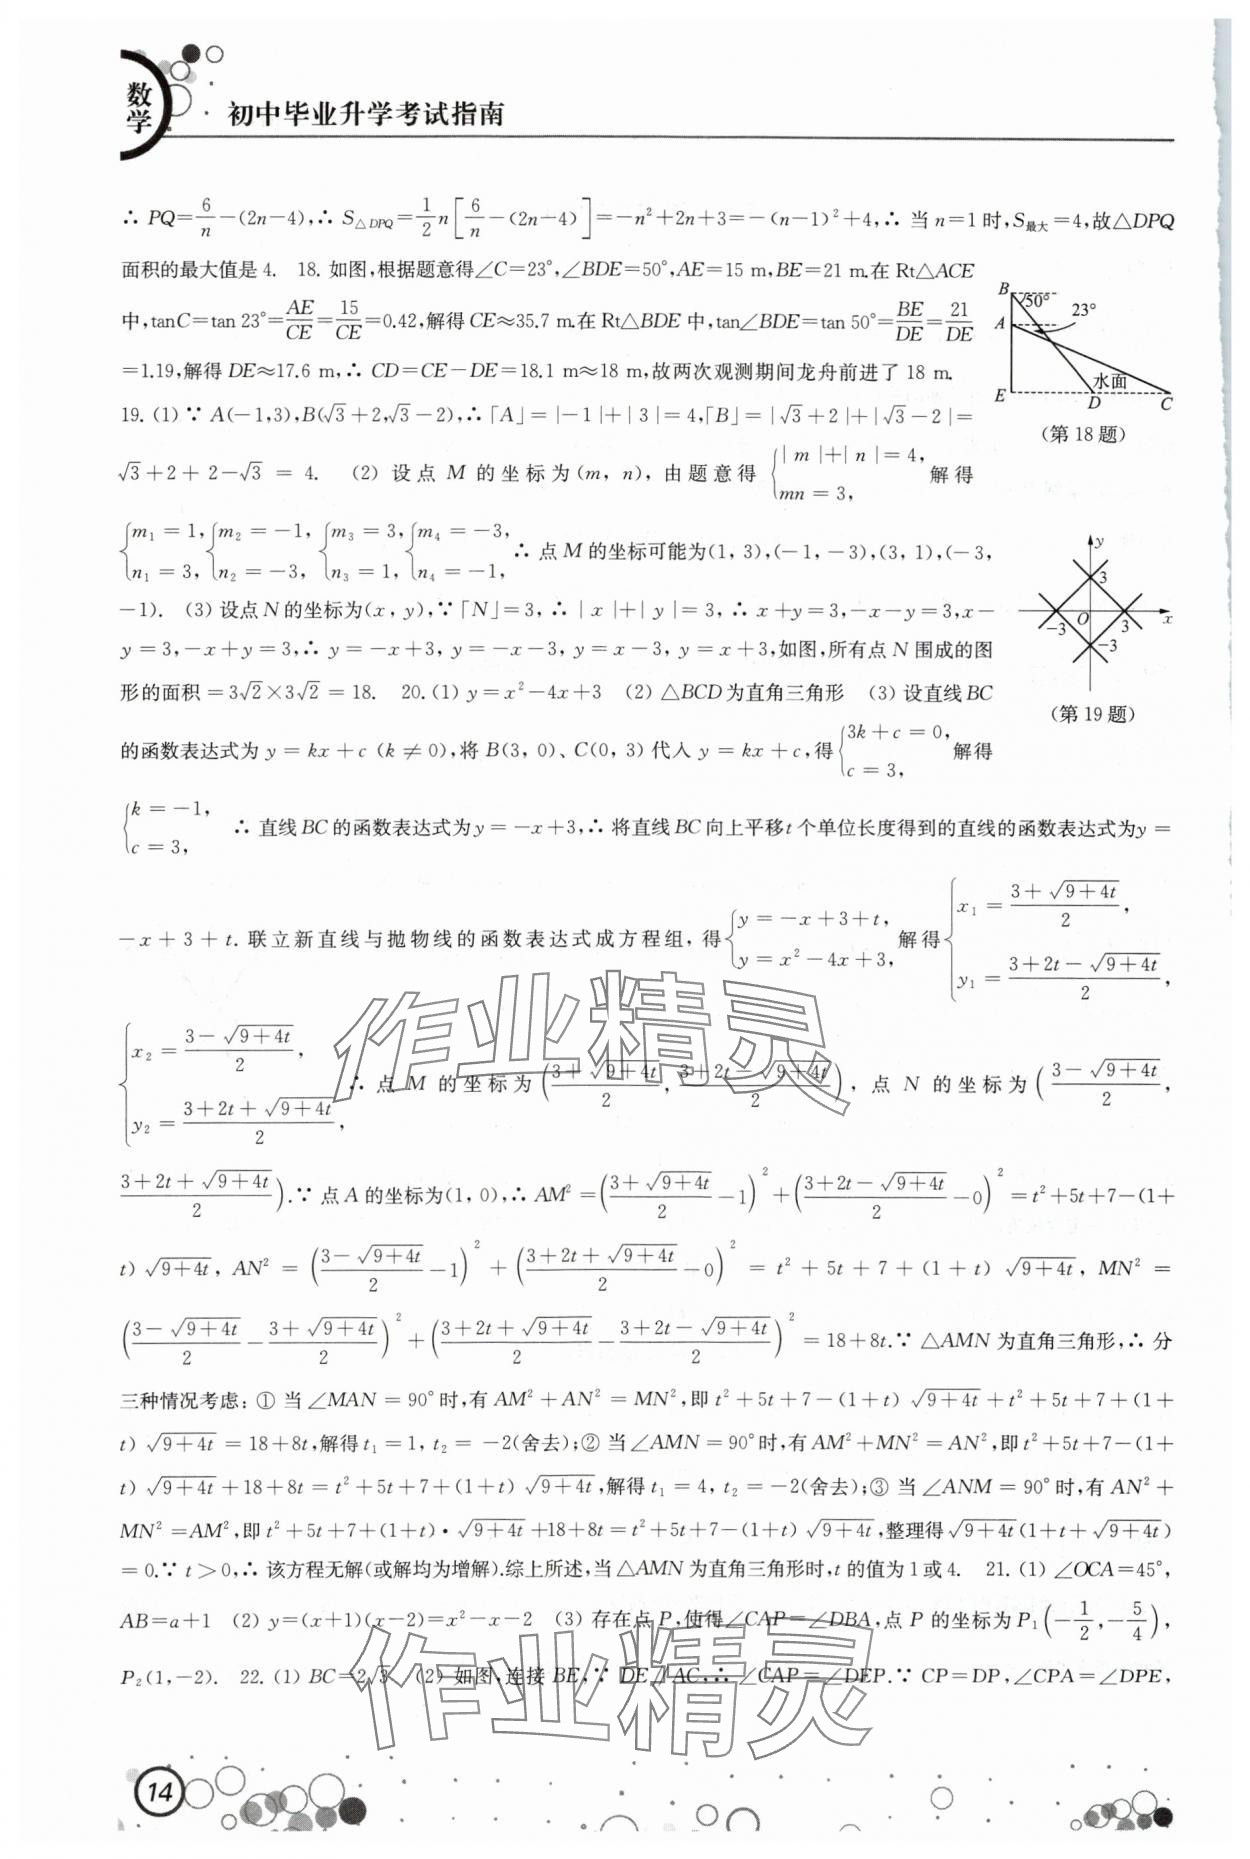 数学
初中毕业升学考试指南
∴ PQ=6/n-(2n-4),∴ S△DPQ=1/2 n[6/n-(2n-4)]=-n²+2n+3=-(n-1)²+4,∴ 当 n=1 时,S最大=4,故△DPQ
面积的最大值是 4. 18. 如图,根据题意得∠C=23°,∠BDE=50°,AE=15 m,BE=21 m.在 Rt△ACE
中,tanC=tan 23°=AE/CE=15/CE=0.42,解得 CE≈35.7 m.在 Rt△BDE 中,tan∠BDE=tan 50°=BE/DE=21/DE
=1.19,解得 DE≈17.6 m,∴ CD=CE-DE=18.1 m≈18 m,故两次观测期间龙舟前进了 18 m.
B
50°
23°
A
水面
E
D
C
(第 18 题)
19. (1) ∵ A(-1,3),B(√3+2,√3-2),∴「A」=|-1|+|3|=4,「B」=|√3+2|+|√3-2|=
√3+2+2-√3 = 4. (2) 设点 M 的坐标为(m, n), 由题意得 {|m|+|n|=4, mn=3, 解得
{m₁=1, n₁=3, {m₂=-1, n₂=-3, {m₃=3, n₃=1, {m₄=-3, n₄=-1, ∴ 点 M 的坐标可能为(1, 3),(-1,-3),(3, 1),(-3,
-1). (3) 设点 N 的坐标为(x, y),∵「N」=3,∴ |x|+|y|=3,∴ x+y=3,-x-y=3,x-
y=3,-x+y=3,∴ y=-x+3, y=-x-3, y=x-3, y=x+3,如图,所有点 N 围成的图
形的面积=3√2×3√2=18. 20. (1) y=x²-4x+3 (2) △BCD为直角三角形 (3) 设直线 BC
y
3
O
-3
3
x
-3
(第 19 题)
的函数表达式为 y=kx+c (k≠0),将 B(3, 0)、C(0, 3) 代入 y=kx+c,得{3k+c=0, c=3, 解得
{k=-1, c=3, ∴ 直线 BC 的函数表达式为 y=-x+3,∴ 将直线 BC 向上平移 t 个单位长度得到的直线的函数表达式为 y=
-x+3+t. 联立新直线与抛物线的函数表达式成方程组, 得{y=-x+3+t, y=x²-4x+3, 解得{x₁=(3+√(9+4t))/2, y₁=(3+2t-√(9+4t))/2,
{x₂=(3-√(9+4t))/2, y₂=(3+2t+√(9+4t))/2, ∴ 点 M 的坐标为((3+√(9+4t))/2, (3+2t-√(9+4t))/2), 点 N 的坐标为((3-√(9+4t))/2,
(3+2t+√(9+4t))/2).∵ 点 A 的坐标为(1, 0),∴ AM²=((3+√(9+4t))/2-1)²+((3+2t-√(9+4t))/2-0)²=t²+5t+7-(1+
t)√(9+4t), AN²=((3-√(9+4t))/2-1)²+((3+2t+√(9+4t))/2-0)²=t²+5t+7+(1+t)√(9+4t), MN²=
((3-√(9+4t))/2-(3+√(9+4t))/2)²+((3+2t+√(9+4t))/2-(3+2t-√(9+4t))/2)²=18+8t.∵ △AMN 为直角三角形,∴ 分
三种情况考虑: ① 当∠MAN=90°时,有 AM²+AN²=MN²,即 t²+5t+7-(1+t)√(9+4t)+t²+5t+7+(1+
t)√(9+4t)=18+8t,解得 t₁=1, t₂=-2(舍去);② 当∠AMN=90°时,有 AM²+MN²=AN²,即 t²+5t+7-(1+
t)√(9+4t)+18+8t=t²+5t+7+(1+t)√(9+4t),解得 t₁=4, t₂=-2(舍去);③ 当∠ANM=90°时,有 AN²+
MN²=AM²,即 t²+5t+7+(1+t)·√(9+4t)+18+8t=t²+5t+7-(1+t)√(9+4t),整理得√(9+4t)(1+t+√(9+4t))
=0.∵ t>0,∴ 该方程无解(或解均为增解).综上所述,当△AMN 为直角三角形时,t 的值为 1 或 4. 21. (1) ∠OCA=45°,
AB=a+1 (2) y=(x+1)(x-2)=x²-x-2 (3) 存在点 P,使得∠CAP=∠DBA,点 P 的坐标为 P₁(-1/2,-5/4),
P₂(1,-2). 22. (1) BC=2√3 (2) 如图,连接 BE,∵ DE∥AC,∴ ∠CAP=∠DEP.∵ CP=DP,∠CPA=∠DPE,
作业精灵
作业精灵
14